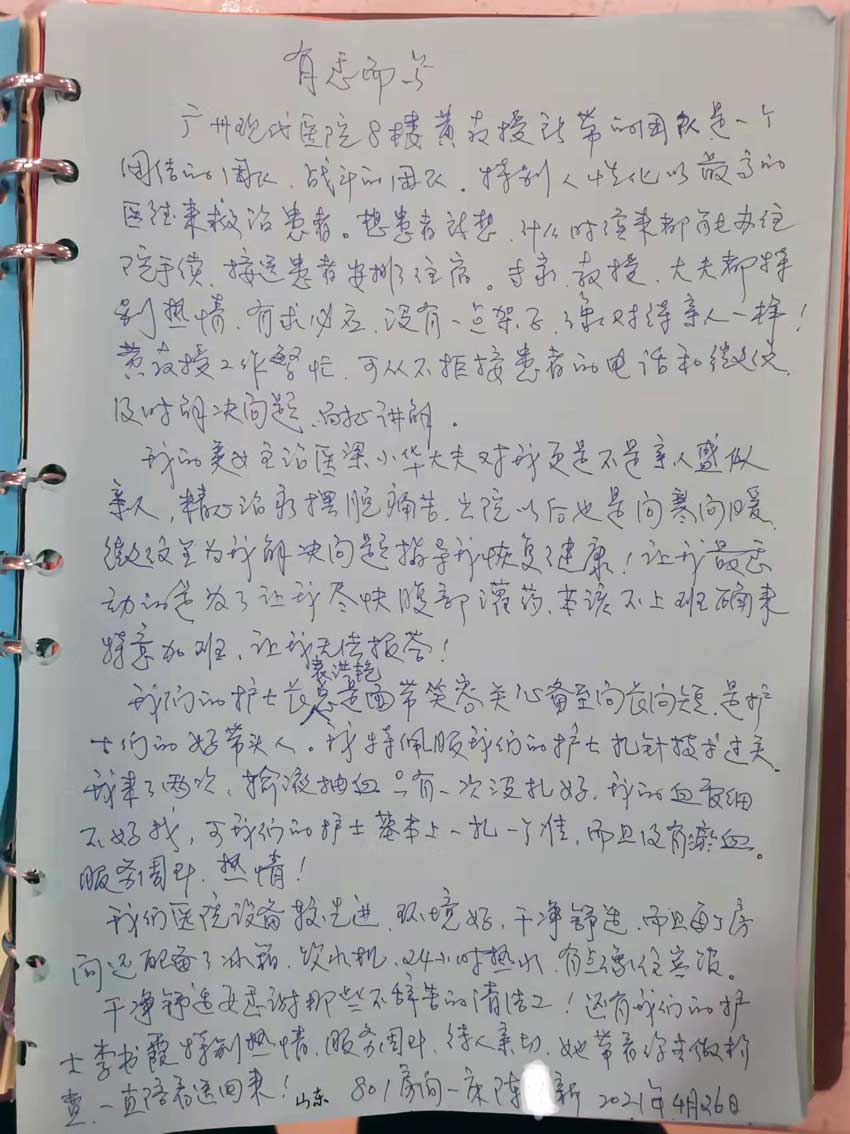 有感而写
广州现代医院8楼黄教授所带的团队是一个
团结的团队、战斗的团队。特别人性化以最高的
医德来救治患者。想患者所想,什么时候来都能办住
院手续,接送患者安排了住宿。专家、教授、大夫都特
别热情,有求必应,没有一点架子,像对待亲人一样!
黄教授工作繁忙,可从不拒接患者的电话和微信,
及时解决问题,耐心讲解。
我的美女主治医梁小华大夫对我更是不是亲人盛似
亲人,精心治疗摆脱痛苦,出院以后也是问寒问暖,
微信里为我解决问题指导我恢复健康!让我最感
动的是为了让我尽快腹部灌药,本该不上班确来
特意加班,让我无法报答!
我们的护士长袁洪艳总是面带笑容关心备至问长问短,是护
士们的好带头人。我特佩服我们的护士扎针技术过关
我来了两次,输液抽血只有一次没扎好,我的血管细
不好找,可我们的护士基本上一扎一个准,而且没有瘀血。
服务周到,热情!
我们医院设备较先进,环境好,干净舒适,而且每个房
间还配备了冰箱、饮水机、24小时热水,有点像住宾馆。
干净舒适要感谢那些不辞苦的清洁工!还有我们的护
士李书霞特别热情,服务周到,待人亲切,她带着你去做检
查,一直陪着送回来!山东 801房间一床陈 新 2021年4月26日